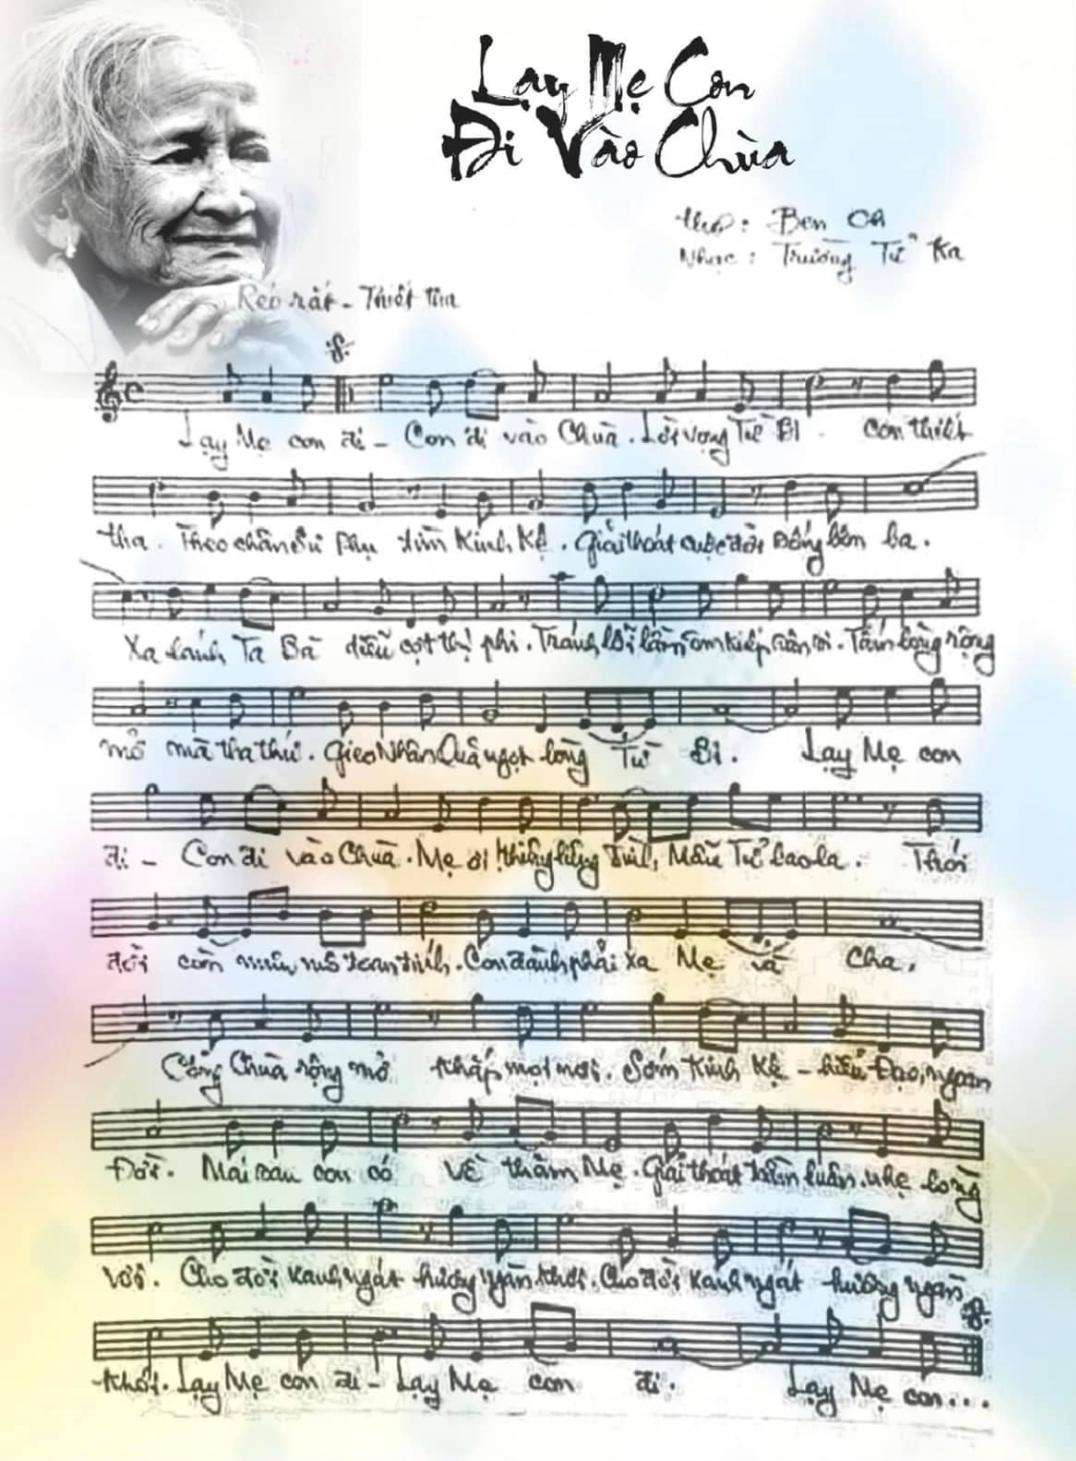 Lạy Mẹ Con
Đi Vào Chùa
thơ: Ben Ca
Nhạc: Trường Tử Ka
Réo rắt - Thiết tha
Lạy Mẹ con đi - Con đi vào Chùa. Lời vọng Từ Bi. Con thiết
tha. Theo chân Sư Phụ tìm Kinh Kệ. Giải thoát cuộc đời sống bôn ba.
Xa lánh Ta Bà điều cợt thị phi. Tránh lối lầm ôm kiếp sân si. Tấm lòng rộng
mở mà tha thứ. Gieo Nhân Quả ngọt lòng Từ Bi. Lạy Mẹ con
đi - Con đi vào Chùa. Mẹ ơi! thiêng liêng tình Mẫu Tử bao la. Thói
đời còn toan tính. Con đành phải xa Mẹ và Cha.
Cổng Chùa rộng mở khắp mọi nơi. Sớm Kinh Kệ - hiểu Đạo, ngoan
Đời. Mai sau con có về thăm Mẹ. Giải thoát trầm luân, nhẹ lòng
vơi. Cho đời xanh ngát hương ngàn khơi. Cho đời xanh ngát hương ngàn
khơi. Lạy Mẹ con đi - Lạy Mẹ con đi. Lạy Mẹ con...